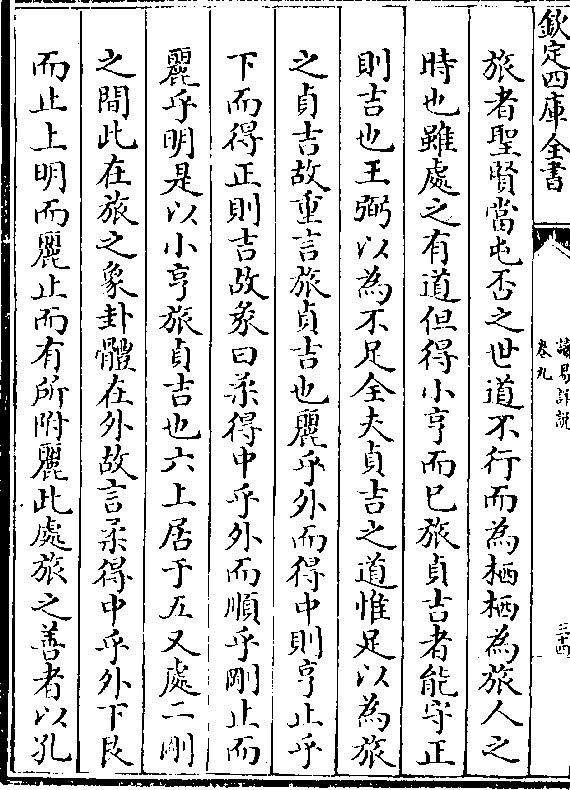 欽定四庫全書
讀易詳說
卷九
三十四
旅者聖賢當屯否之世道不行而為栖栖為旅人之
時也雖處之有道但得小亨而已旅貞吉者能守正
則吉也王弼以為不足全夫貞吉之道惟足以為旅
之貞吉故重言旅貞吉也麗乎外而得中則亨止乎
下而得正則吉故彖曰柔得中乎外而順乎剛止而
麗乎明是以小亨旅貞吉也六上居于五又處二剛
之間此在旅之象卦體在外故言柔得中乎外下艮
而止上明而麗止而有所附麗此處旅之善者以孔